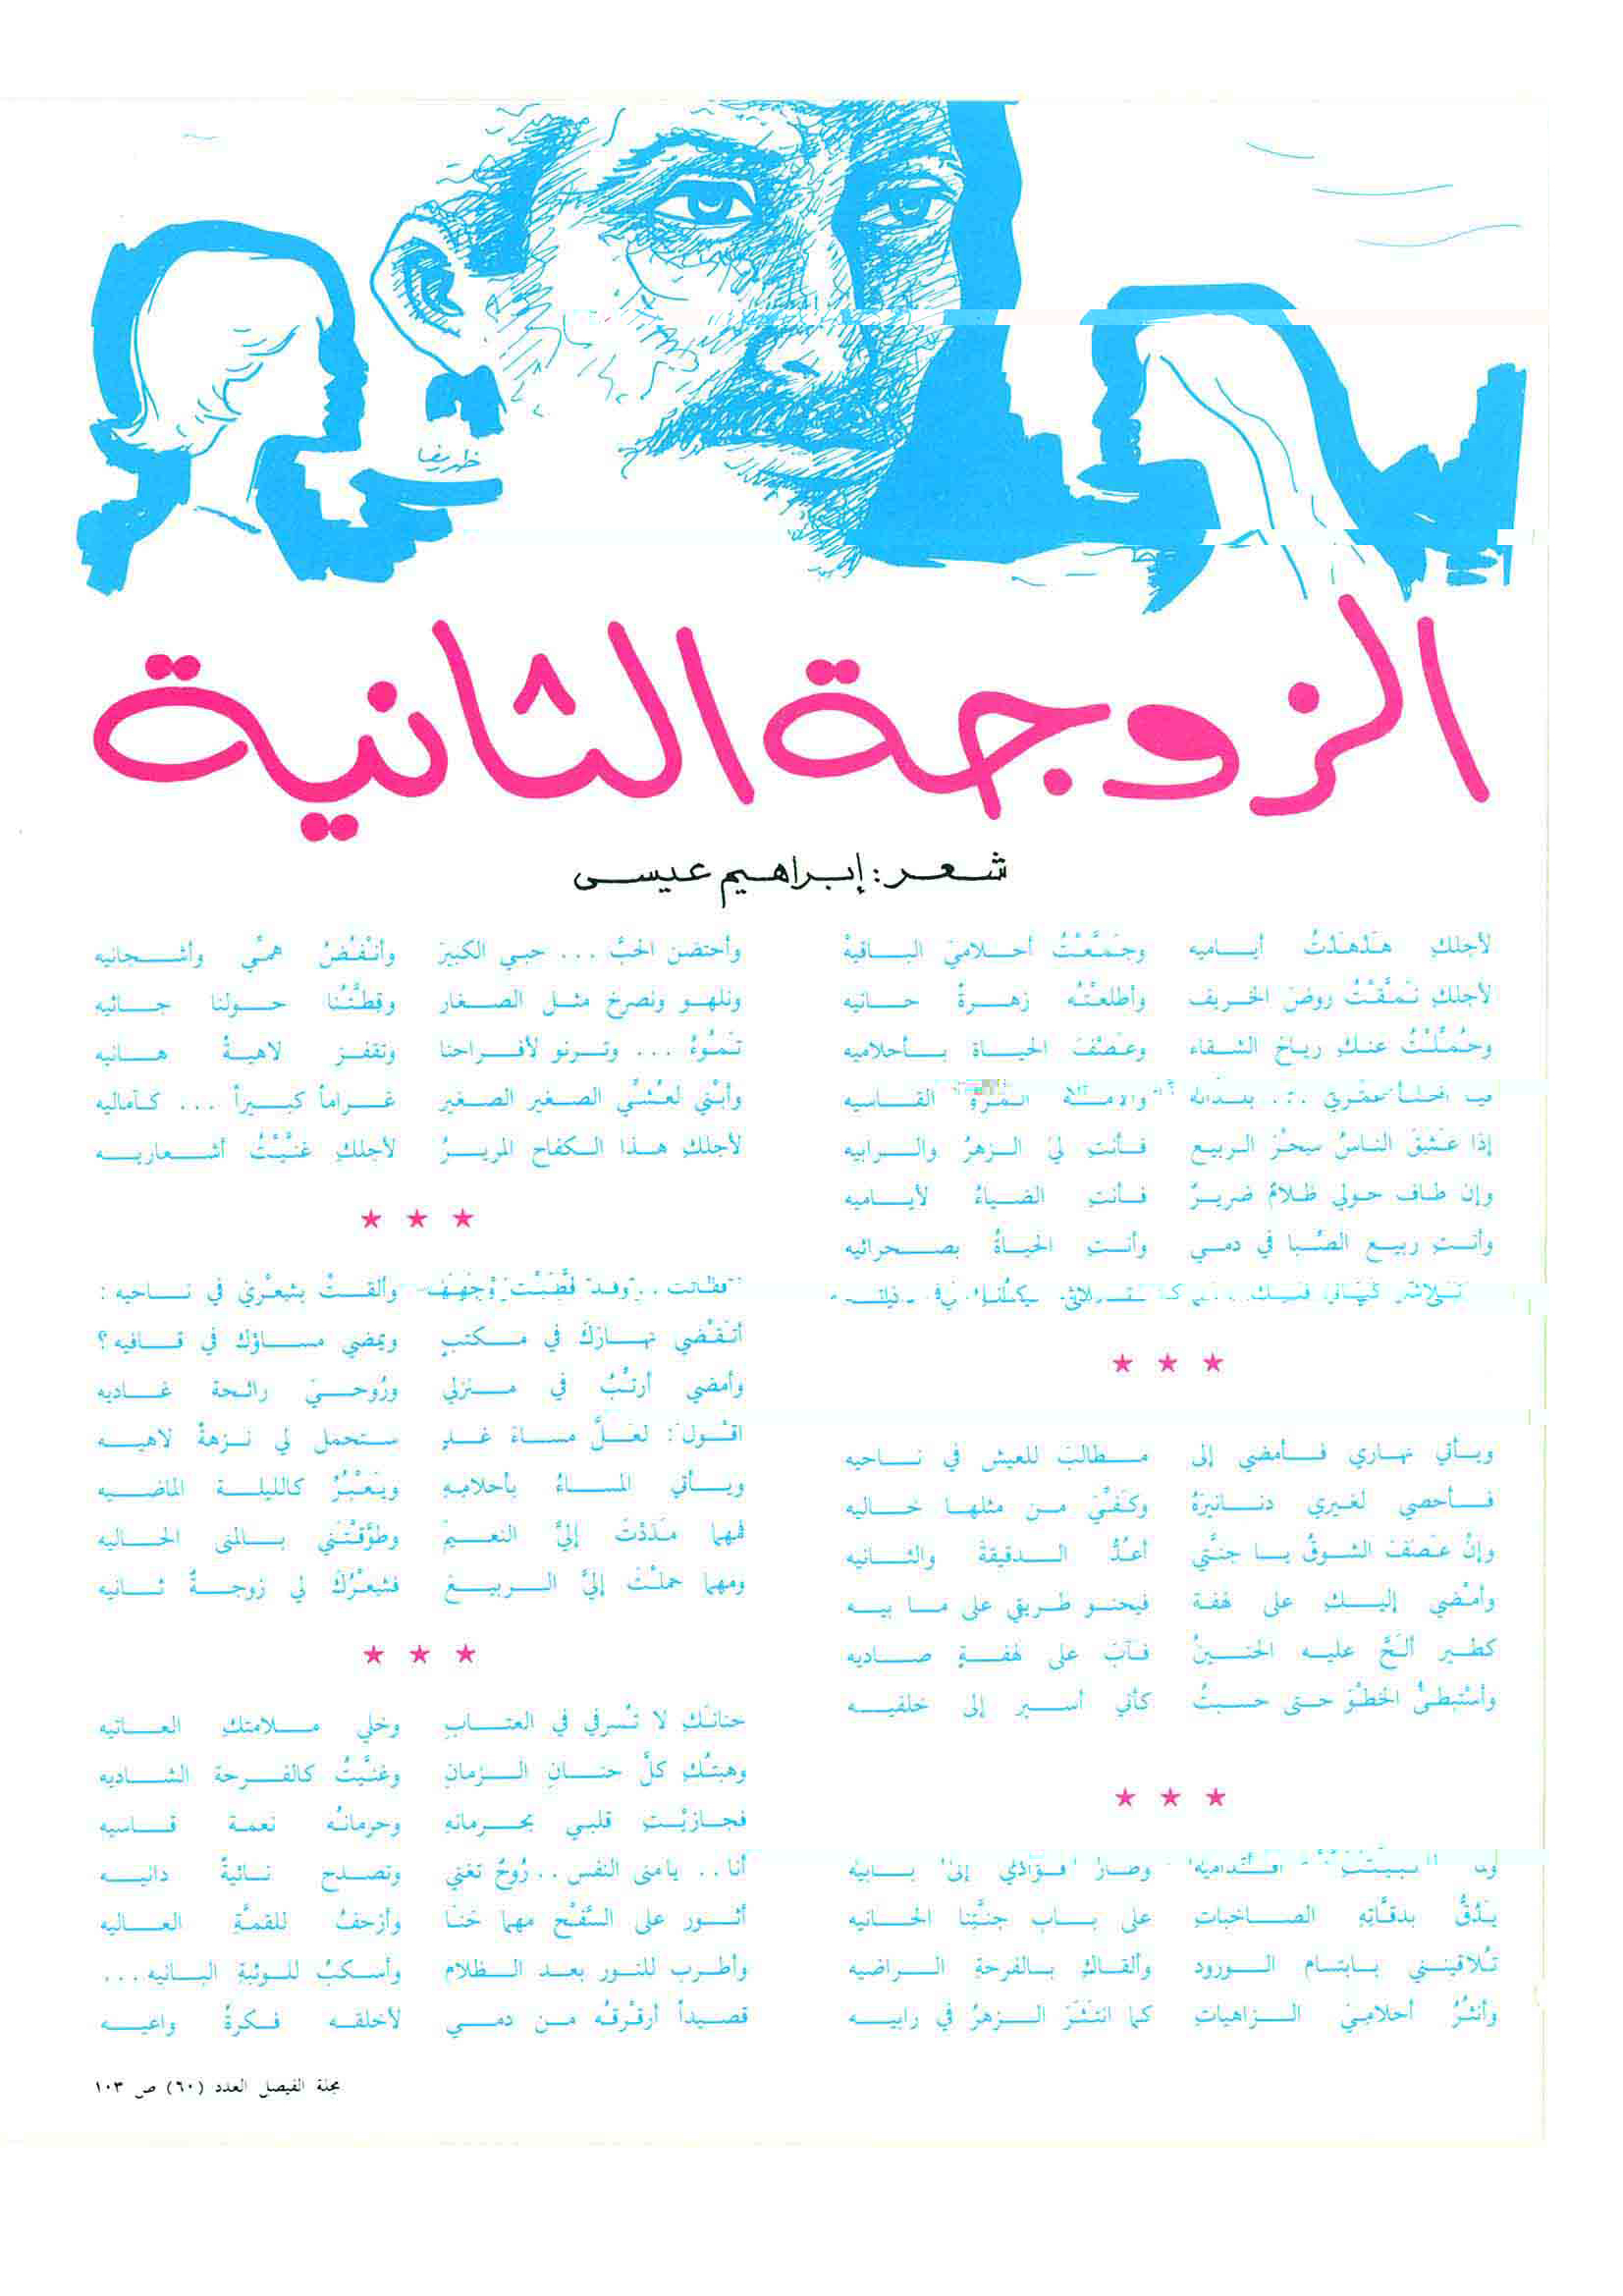 ظريفا
الزوجة الثانية
شعر : إبراهيم عيسى
لأجلكِ هَدْهَدْتُ أيــاميه وجَمعَّعْتُ أحلاميَ البـاقيهْ
لأجلكِ نَمَّقْتُ روضَ الخريف وأطلعْتُه زهرةً حـانيه
وحُمِّلْتُ عنكِ رياحَ الشقاء وعَصْفَ الحيـاة بـأحلاميه
القاسيه
إذا عَشِقَ الناسُ سِحْرَ الربيع فأنتِ ليَ الزهرُ والرابيه
وإن طاف حولي ظلامٌ ضريرٌ فأنتِ الضياءُ لأياميه
وأنتِ ربيع الصِّبا في دمي وأنتِ الحياةُ بصحرائيه
★ ★ ★
ويأتي نهاري فأمضي إلى مطالبَ للعيش في ناحيه
فأحصي لغيري دنانيرَهُ وكَفِّيَ من مثلها خاليه
وإنْ عَصَفَ الشوقُ يا جنَّتي أعُدُّ الدقيقةَ والثانيه
وأمْضي إليكِ على لهفة فيحنو طريقي على ما بيه
كطيرٍ ألَحَّ عليه الحنينُ فآبَ على لهفةٍ صاديه
وأسْتبطئُ الخطْوَ حتى حسبتُ كأني أسير إلى خلفيه
★ ★ ★
وصارَ فؤادي إلى بابيه
يَدُقُّ بدقَّاتِهِ الصاخباتِ على بابِ جنَّتِنا الحانيه
تُلاقينني بابتسام الورود وألقاكِ بالفرحةِ الراضيه
وأنثُرُ أحلاميَ الزاهياتِ كما انتَثَرَ الزهرُ في رابيه
وأحتضن الحبَّ ... حبي الكبيرَ وأنْفُضُ همِّي وأشجانيه
ونلهو ونصرخ مثل الصغار وقِطَّتُنا حولنا جاثيه
تَموءُ ... وترنو لأفراحنا وتقفز لاهيةً هانيه
وأبْني لعُشِّي الصغير الصغير غراماً كبيراً ... كآماليه
لأجلكِ هذا الكفاح المريرُ لأجلكِ غنَّيْتُ أشعاريه
★ ★ ★
وألقتْ بشِعْري في ناحيه :
أتَقْضي نهارَكَ في مكتبٍ ويمضي مساؤك في قافيه ؟
وأمضي أرتِّبُ في منزلي ورُوحيَ رائحة غاديه
أقول : لعلَّ مساءَ غدٍ ستحمل لي نزهةً لاهيه
ويأتي المساءُ بأحلامِهِ ويَعْبُرُ كالليلة الماضيه
فمهما مَدَدْتَ إليَّ النعيمَ وطوَّقْتَني بالمنى الحاليه
ومهما حملْتَ إليَّ الربيعَ فشِعْرُكَ لي زوجةٌ ثانيه
★ ★ ★
حنانَكِ لا تُسرفي في العتابِ وخلي ملامتكِ العاتيه
وهبتُكِ كلَّ حنانِ الزمانِ وغنَّيتُ كالفرحة الشاديه
فجازيْتِ قلبي بحرمانهِ وحرمانُه نعمة قاسيه
أنا .. يا منى النفس .. رُوحٌ تغني وتصدح نائيةً دانيه
أثور على السَّفْح مهما حَنَا وأزحفُ للقمَّةِ العاليه
وأطرب للنور بعد الظلام وأسكبُ للوثبةِ البانيه ...
قصيداً أرقرقُه من دمي لأخلقه فكرةً واعيه
مجلة الفيصل العدد (٦٠) ص ١٠٣